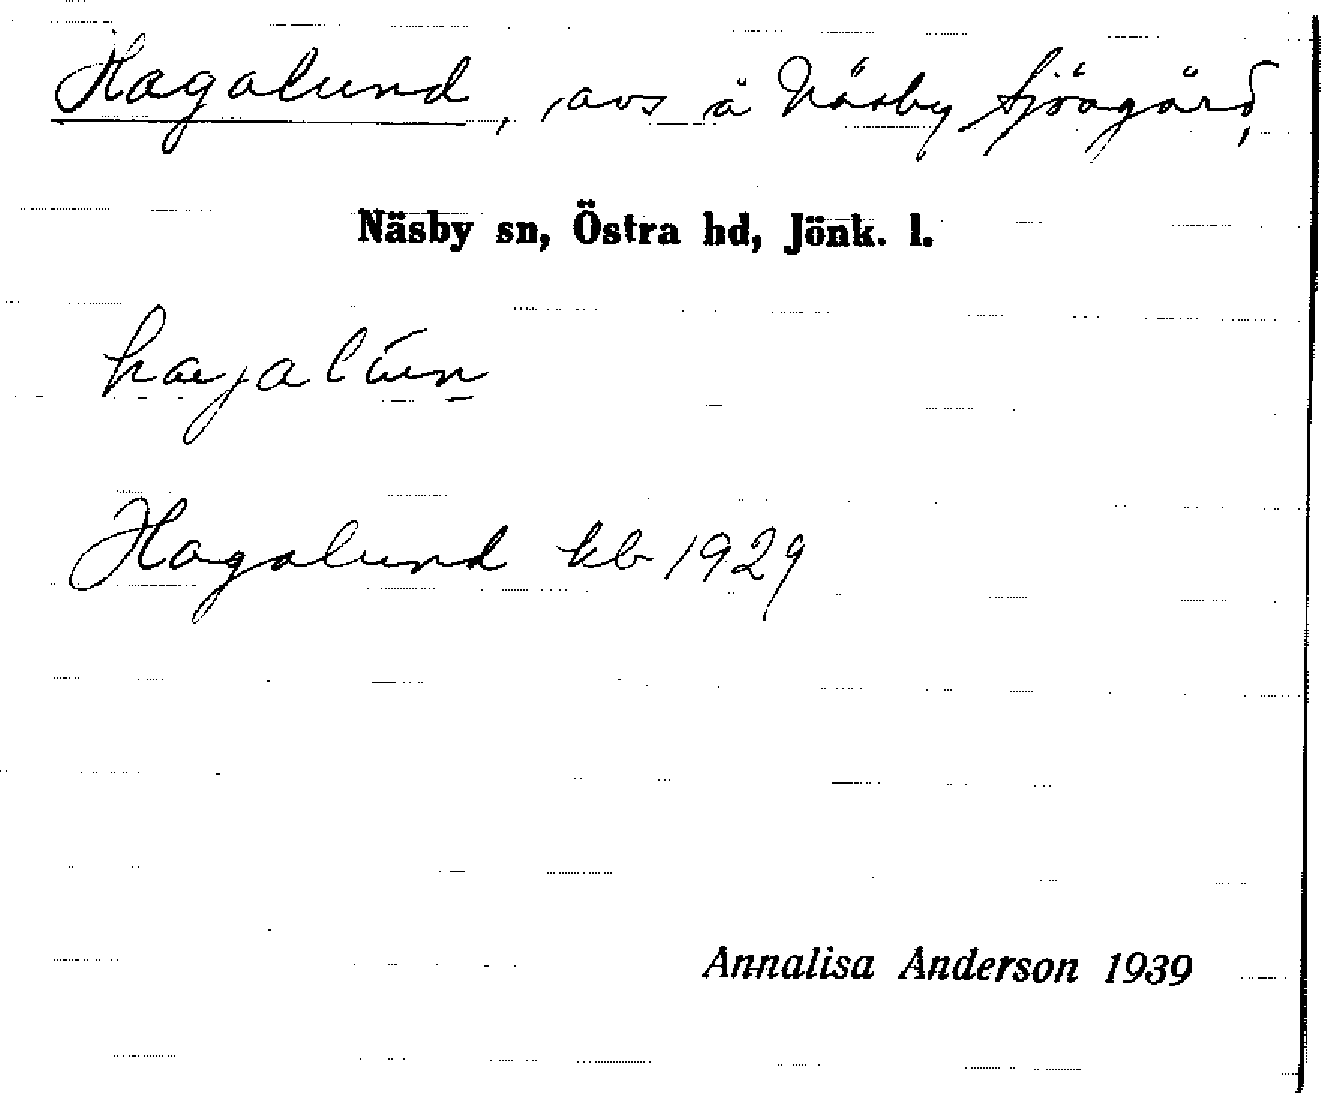 Hagalund, avs å Näsby Sjöagård,
Näsby sn, Östra hd, Jönk. l.
Hagalund kb 1929
Annalisa Anderson 1939